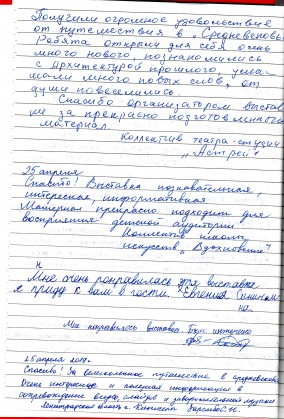 Получили огромное удовольствие
от путешествия в „Средневековье"
Ребята открыли для себя очень
много нового, познакомились
с архитектурой прошлого, узна-
ли много новых слов, от
души повеселились.
Спасибо организаторам выстав
за прекрасно подготовленный
материал.
Коллектив театра-студии
25 апреля
Спасибо! Выставка познавательная,
интересная, информативная
Материал прекрасно подходит для
восприятия детской аудитории
школы
искусств „Вдохновение"
Мне очень понравилась эта выставка
я приду к вам в гости. Евгения
на.
Мне понравилась выставка. Было интересно
25 апреля
Спасибо! За путешествие в средневековье
Очень интересная и полезная информация в
сопровождение